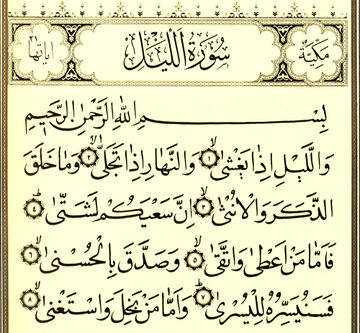 مكية سورة الليل آياتها ٢١
بِسْمِ اللهِ الرَّحْمٰنِ الرَّحِيمِ
وَالَّيْلِ اِذَا يَغْشٰىۙ ﴿١﴾ وَالنَّهَارِ اِذَا تَجَلّٰىۙ ﴿٢﴾ وَمَا خَلَقَ
الذَّكَرَ وَالْاُنْثٰىۙ ﴿٣﴾ اِنَّ سَعْيَكُمْ لَشَتّٰىۜ ﴿٤﴾
فَاَمَّا مَنْ اَعْطٰى وَاتَّقٰىۙ ﴿٥﴾ وَصَدَّقَ بِالْحُسْنٰىۙ ﴿٦﴾
فَسَنُيَسِّرُهُ لِلْيُسْرٰىۜ ﴿٧﴾ وَاَمَّا مَنْ بَخِلَ وَاسْتَغْنٰىۙ ﴿٨﴾